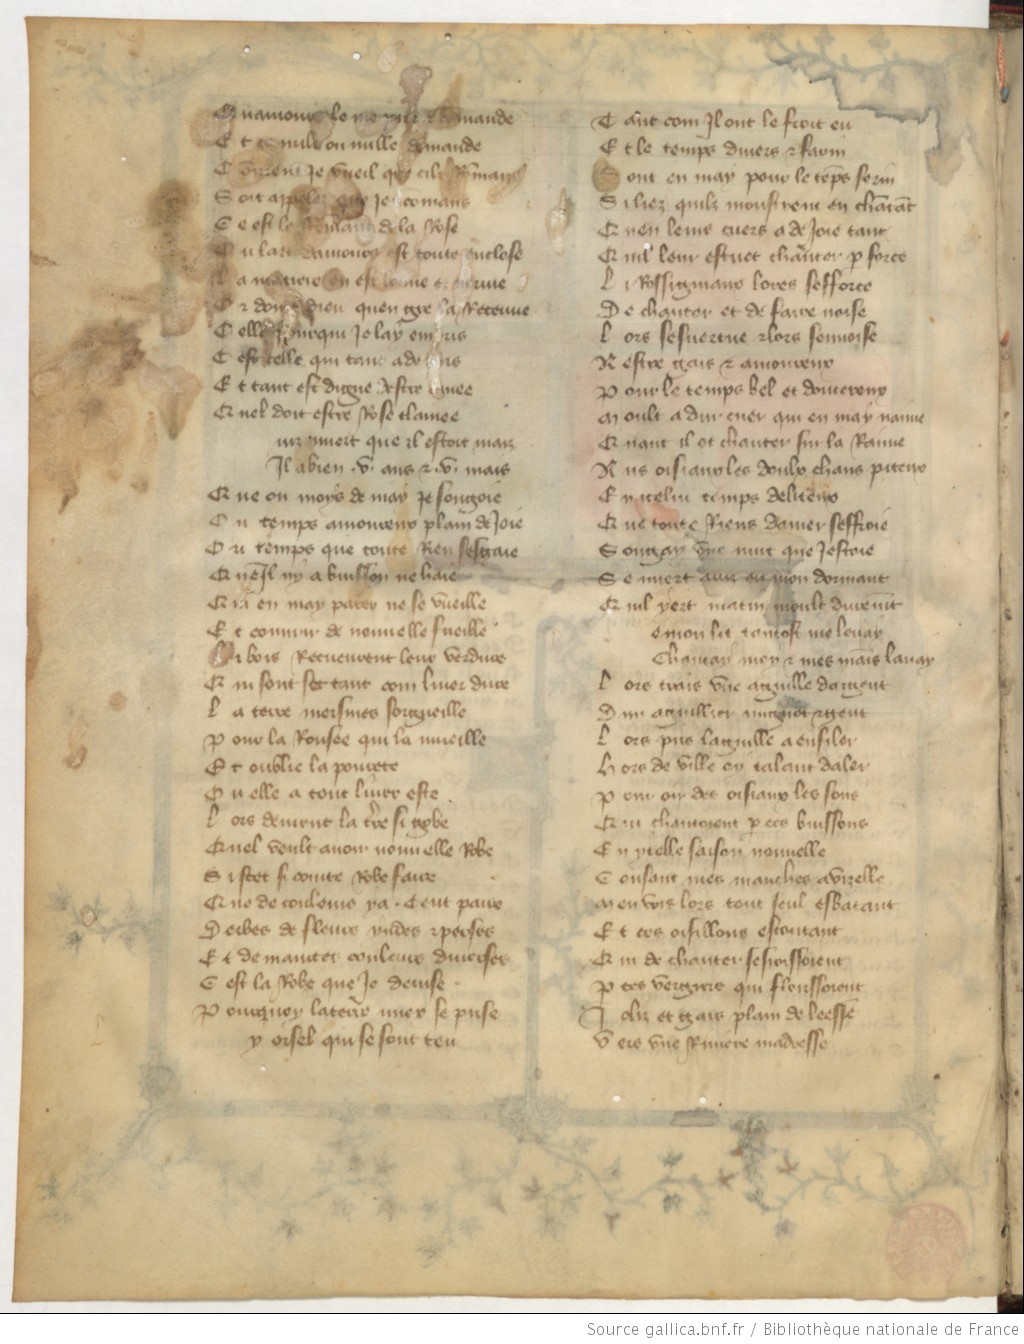 Qu amours le me prie et demande
E t se nulz ou nulle demande
C omment je vueil que cilz Rommans
S oit appelez que je commans
C e est le Rommant de la Rose
O u lart damours est toute enclose
L a matiere en est bonne et neuve
O r doint dieu quen gre la Recoeuve
C elle pour qui je lay empris
C est celle qui tant a de pris
E t tant est digne destre amee
Quel doit estre Rose clamee
mest que il estoit mais
Il a bien .v. ans et .v. mais
Que ou moys de may je songoie
O u temps amoureux plain de Joie
O u temps que toute Rien sesgaie
Quen Il ny a buisson ne haie
Qui en may parer ne se vueille
E t couvrir de nouvelle fueille
L i bois Recueurent leur verdure
Qui sont sec tant com liver dure
L a terre mesmes sorgueille
P our la Rousee qui la mueille
E t oublie la povrete
O u elle a tout liver este
L ors devient la terre si gobe
Quel veult avoir nouvelle Robe
S i scet si cointe Robe faire
Que de couleurs y a . Cent paire
D erbes de fleurs yndes et perses
E t de maintes couleurs diverses
C est la Robe que Je devise
P ourquoy la terre mex se prise
y oisel qui se sont teu
T ant com Il ont le froit eu
E t le temps divers et farin
S ont en may pour le temps serin
S i liez quilz monstrent en chantant
Quen leurs cuers a de Joie tant
Quil leur estuet chanter par force
L i Rossignaux lores sefforce
D e chanter et de faire noise
L ors sesvertue et lors senvoise
N estre gais et amoureux
P our le temps bel et doucereux
M oult a dur cuer qui en may naime
Quant il ot chanter sur la Raime
N us oisiaux les doulx chans piteux
E n icelui temps deliteux
Que toute Riens damer seffroie
S onjay une nuit que Jestoie
S e mert avis en mon dormant
Quil yert matin moult durement
e mon lit tantost me levay
Chaucay moy et mes mains lavay
L ors trais une aguille dargent
D un aguillier mignot et gent
L ors pris laguille a enfiler
H ors de ville oy talant daler
P our oir des oisiaux les sons
Qui chantoient par ces buissons
E n ycelle saison nouvelle
C ousant mes manches a vizelle
M en vois lors tout seul esbatant
E t ces oisillons escoutant
Qui de chanter sesjoissoient
P ar ces vergiers qui flourissoient
J oliz et gais plain de leesse
V ers une Riviere madresse
Source gallica.bnf.fr / Bibliothèque nationale de France